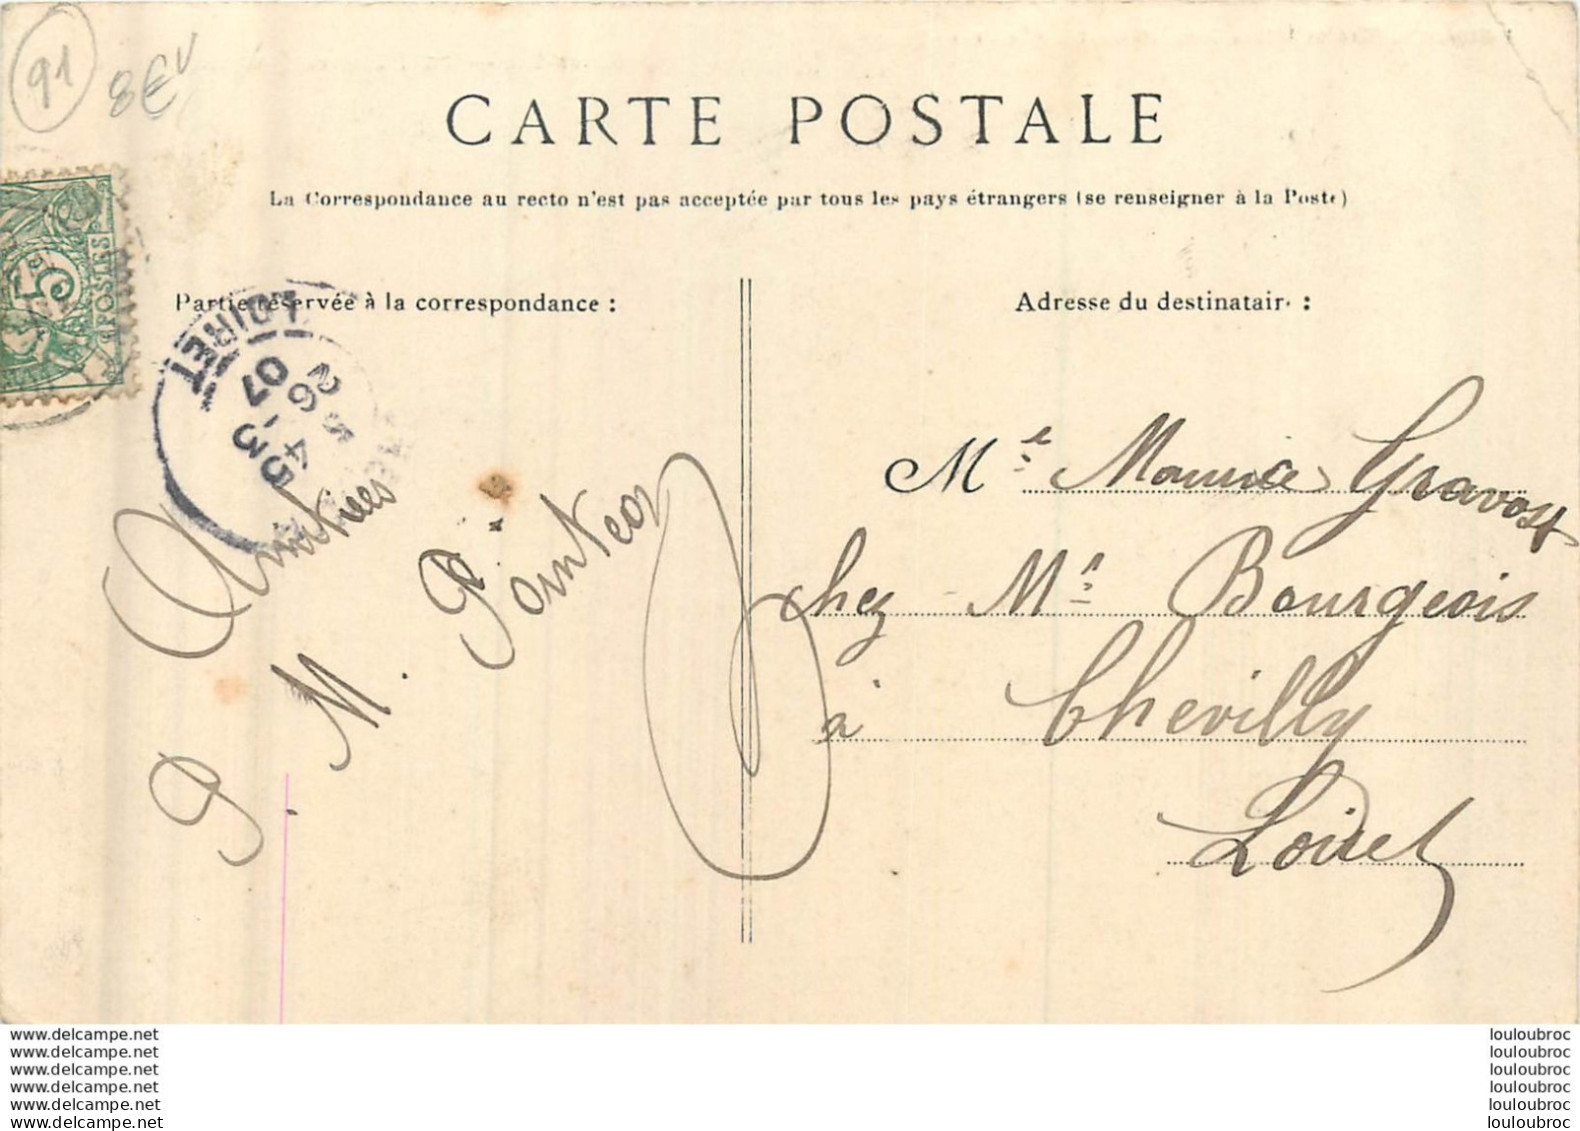 91
8€
CARTE POSTALE
La Correspondance au recto n'est pas acceptée par tous les pays étrangers (se renseigner à la Poste)
Partie réservée à la correspondance :
Adresse du destinataire :
5
POSTES
LOIRET
3 45
26 - 3
07
Amitiées
P. M. Pointeau
Mle Maurice Gravost
chez Mr Bourgeois
à Chevilly
Loiret
www.delcampe.net
www.delcampe.net
www.delcampe.net
www.delcampe.net
www.delcampe.net
www.delcampe.net
louloubroc
louloubroc
louloubroc
louloubroc
louloubroc
louloubroc